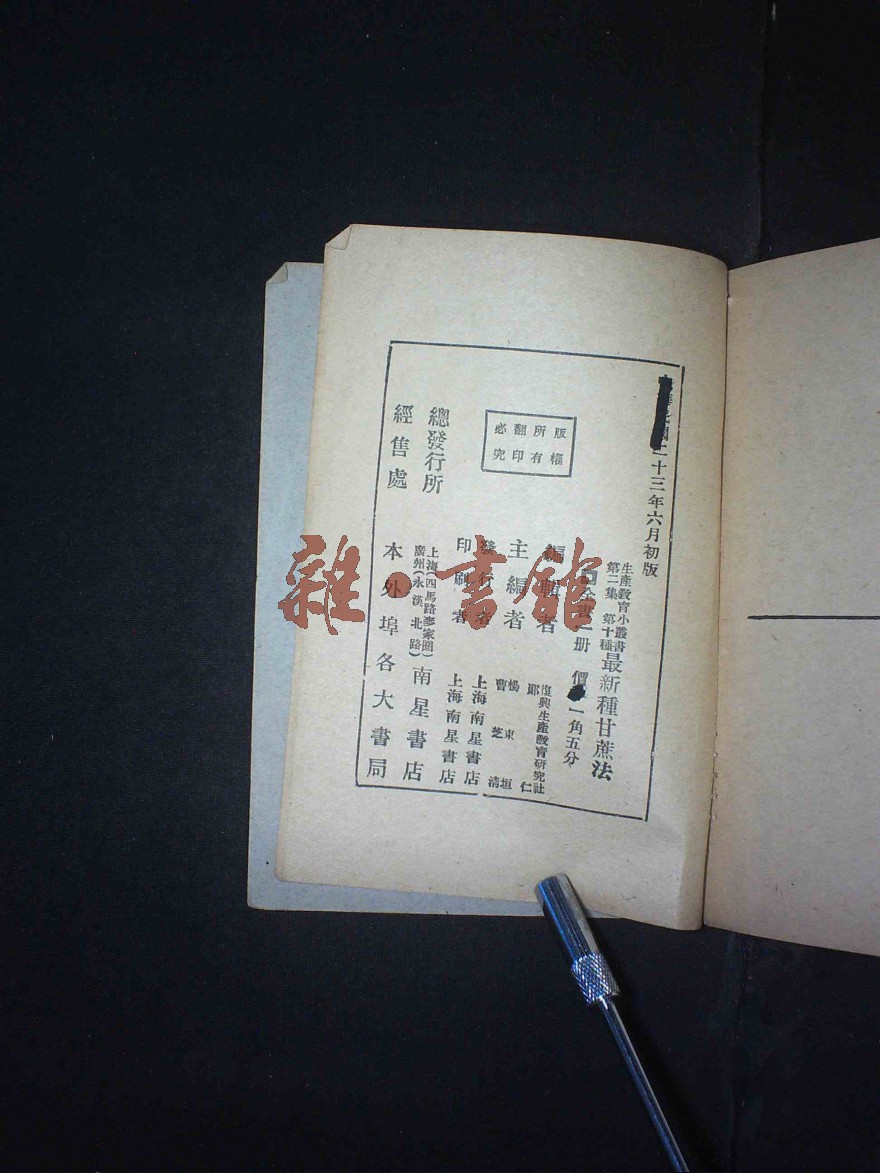 二十三年六月初版
生產教育小叢書
第二集 第十種
最新種甘蔗法
全書一册 價 一角五分
編輯者 復興生產教育研究社
主編者 鄭 仁
楊東垣
曹芝清
發行者 上海南星書店
印刷者 上海南星書店
版權所有
翻印必究
總發行所 上海(四馬路麥家圈)
廣州(永漢北路)
南星書店
經售處 本外埠各大書局
雜·書館